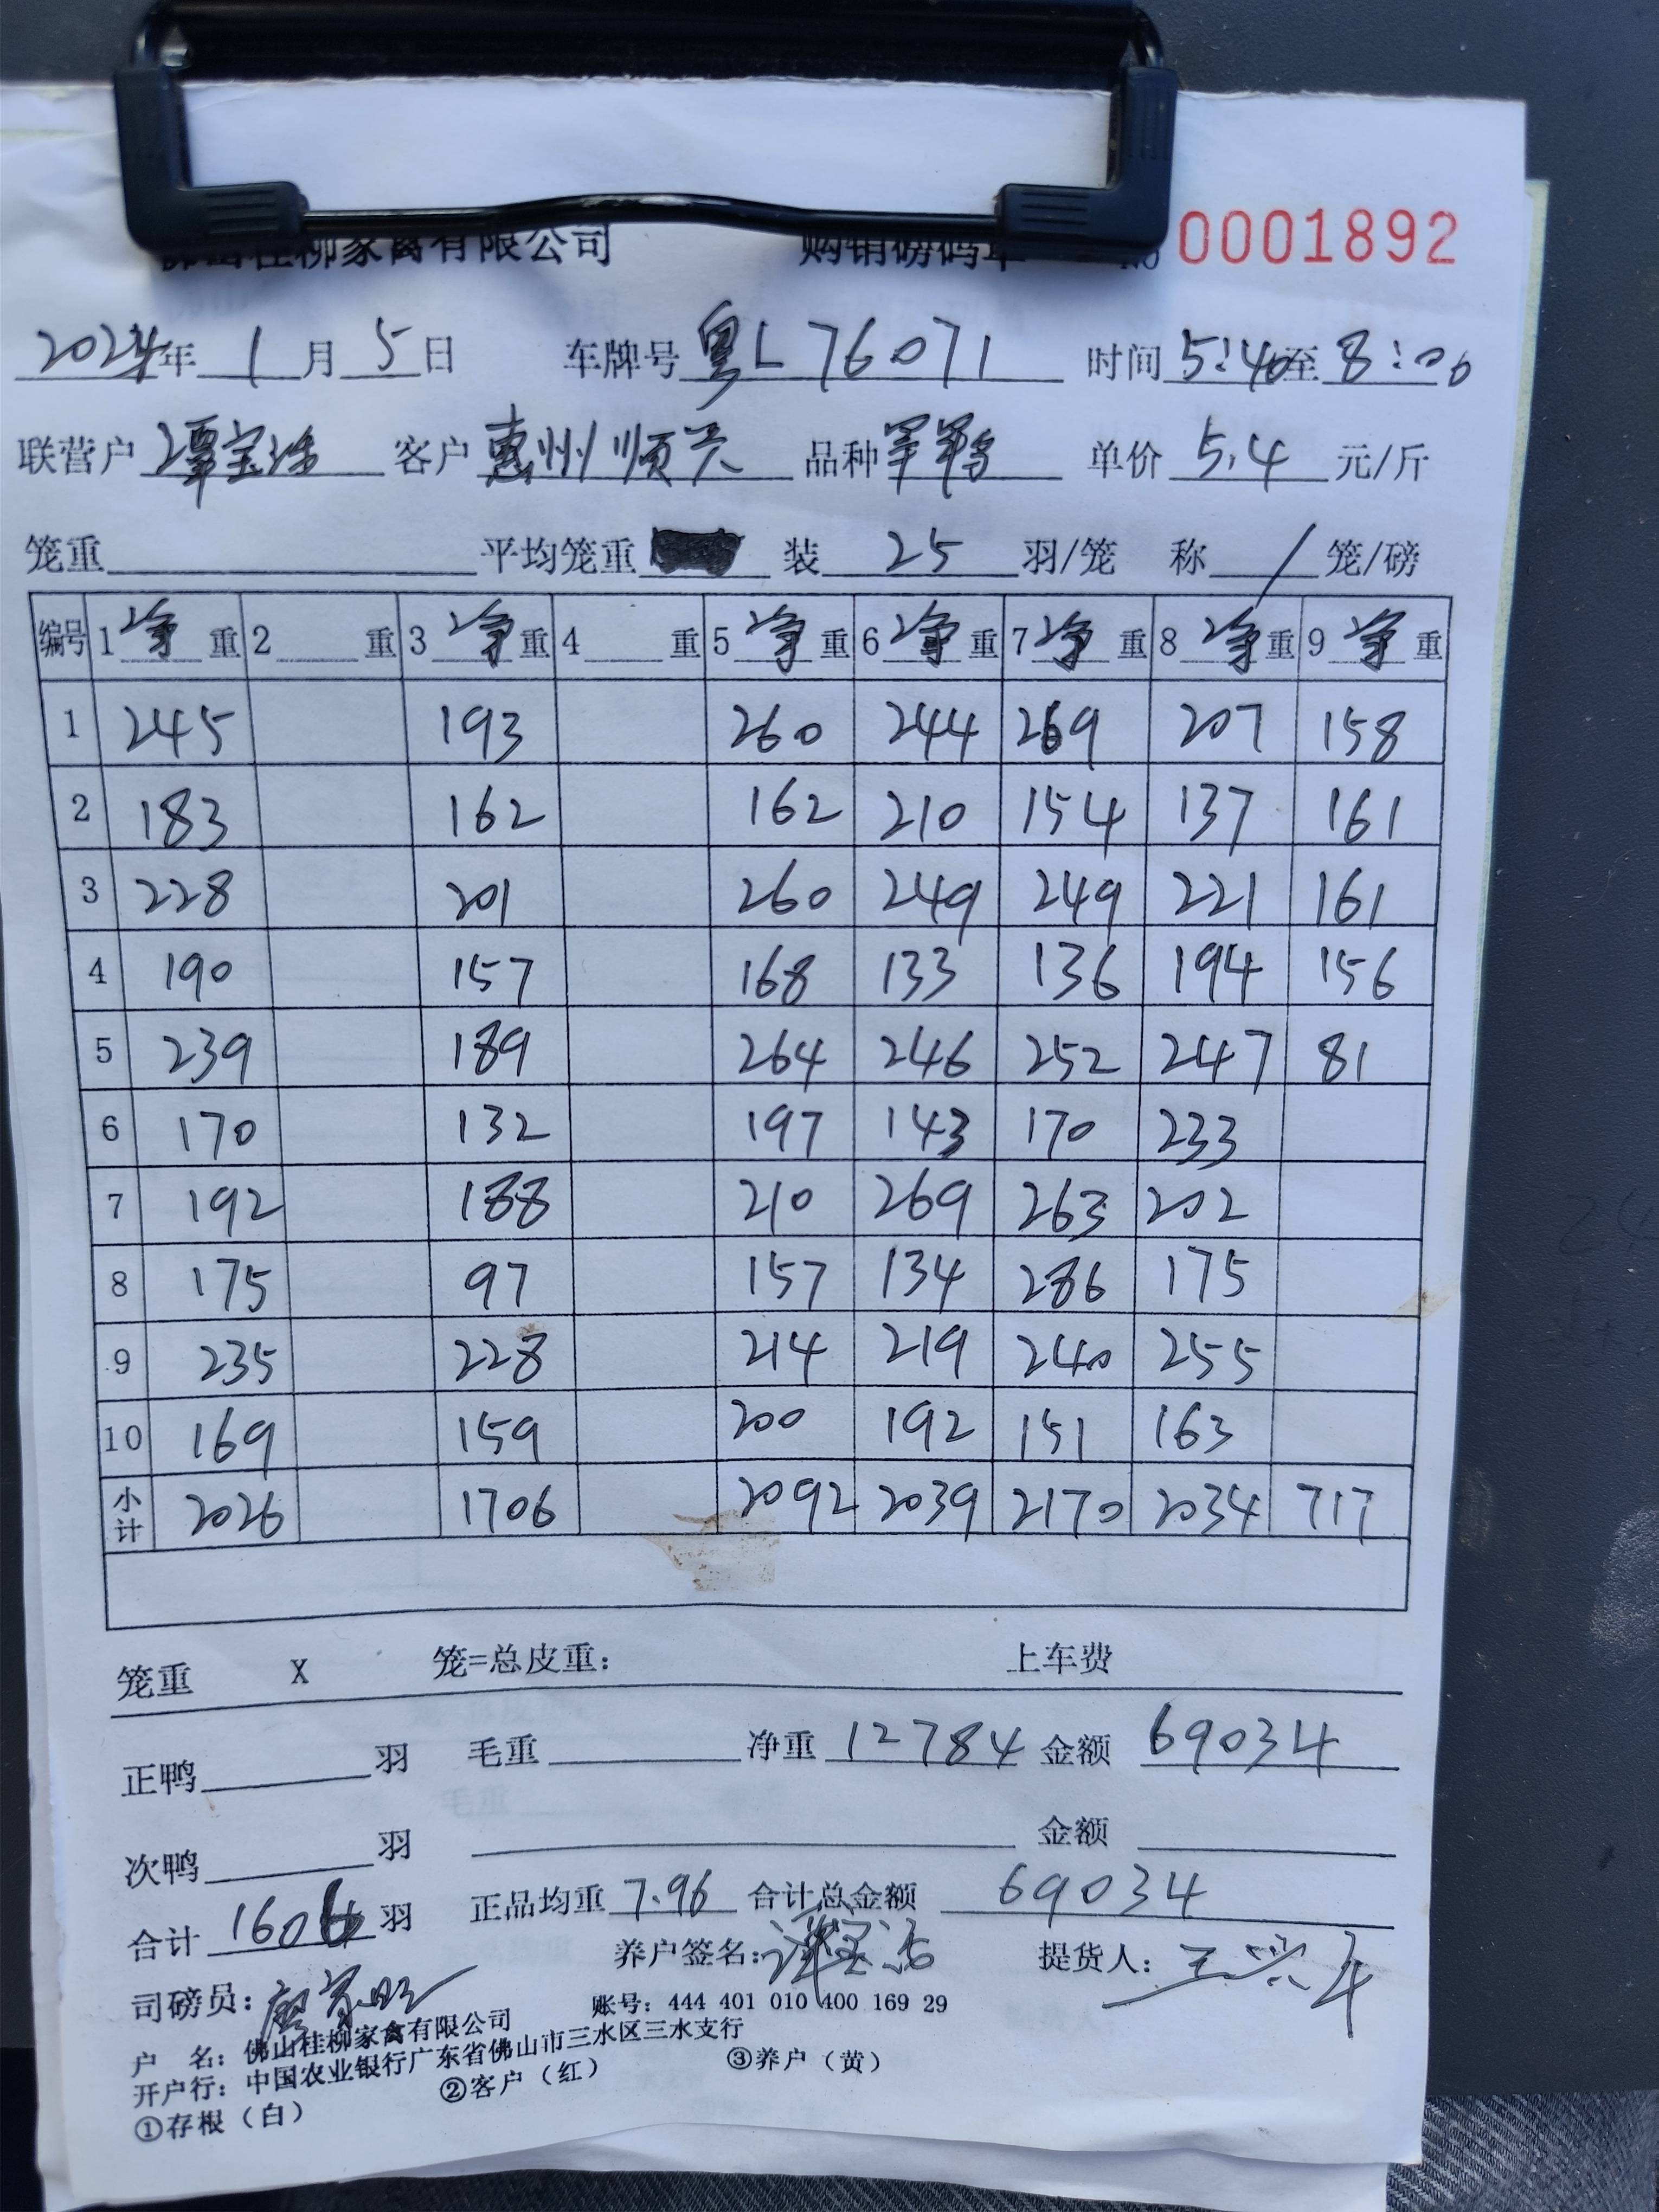 佛山桂柳家禽有限公司 购销磅码单 No 0001892
2024年 1 月 5 日 车牌号 粤L76071 时间 5:40 至 8:00
联营户 谭宝 客户 惠州顺兴 品种 单价 5.4 元/斤
笼重 平均笼重 装 25 羽/笼 称 / 笼/磅
编号 1 净 重 2 重 3 净 重 4 重 5 净 重 6 净 重 7 净 重 8 净 重 9 净 重
1 245 193 260 244 269 207 158
2 183 162 162 210 154 137 161
3 228 201 260 249 249 221 161
4 190 157 168 133 136 194 156
5 239 189 264 246 252 247 81
6 170 132 197 143 170 233
7 192 188 210 269 263 202
8 175 97 157 134 286 175
9 235 228 214 219 240 255
10 169 159 200 192 151 163
小计 2026 1706 2092 2039 2170 2034 717
笼重 X 笼=总皮重: 上车费
正鸭 羽 毛重 净重 12784 金额 69034
次鸭 羽 金额
合计 1606 羽 正品均重 7.96 合计总金额 69034
司磅员: 养户签名: 提货人:
账号: 444 401 010 400 169 29
户 名: 佛山桂柳家禽有限公司
开户行: 中国农业银行广东省佛山市三水区三水支行
①存根（白） ②客户（红） ③养户（黄）